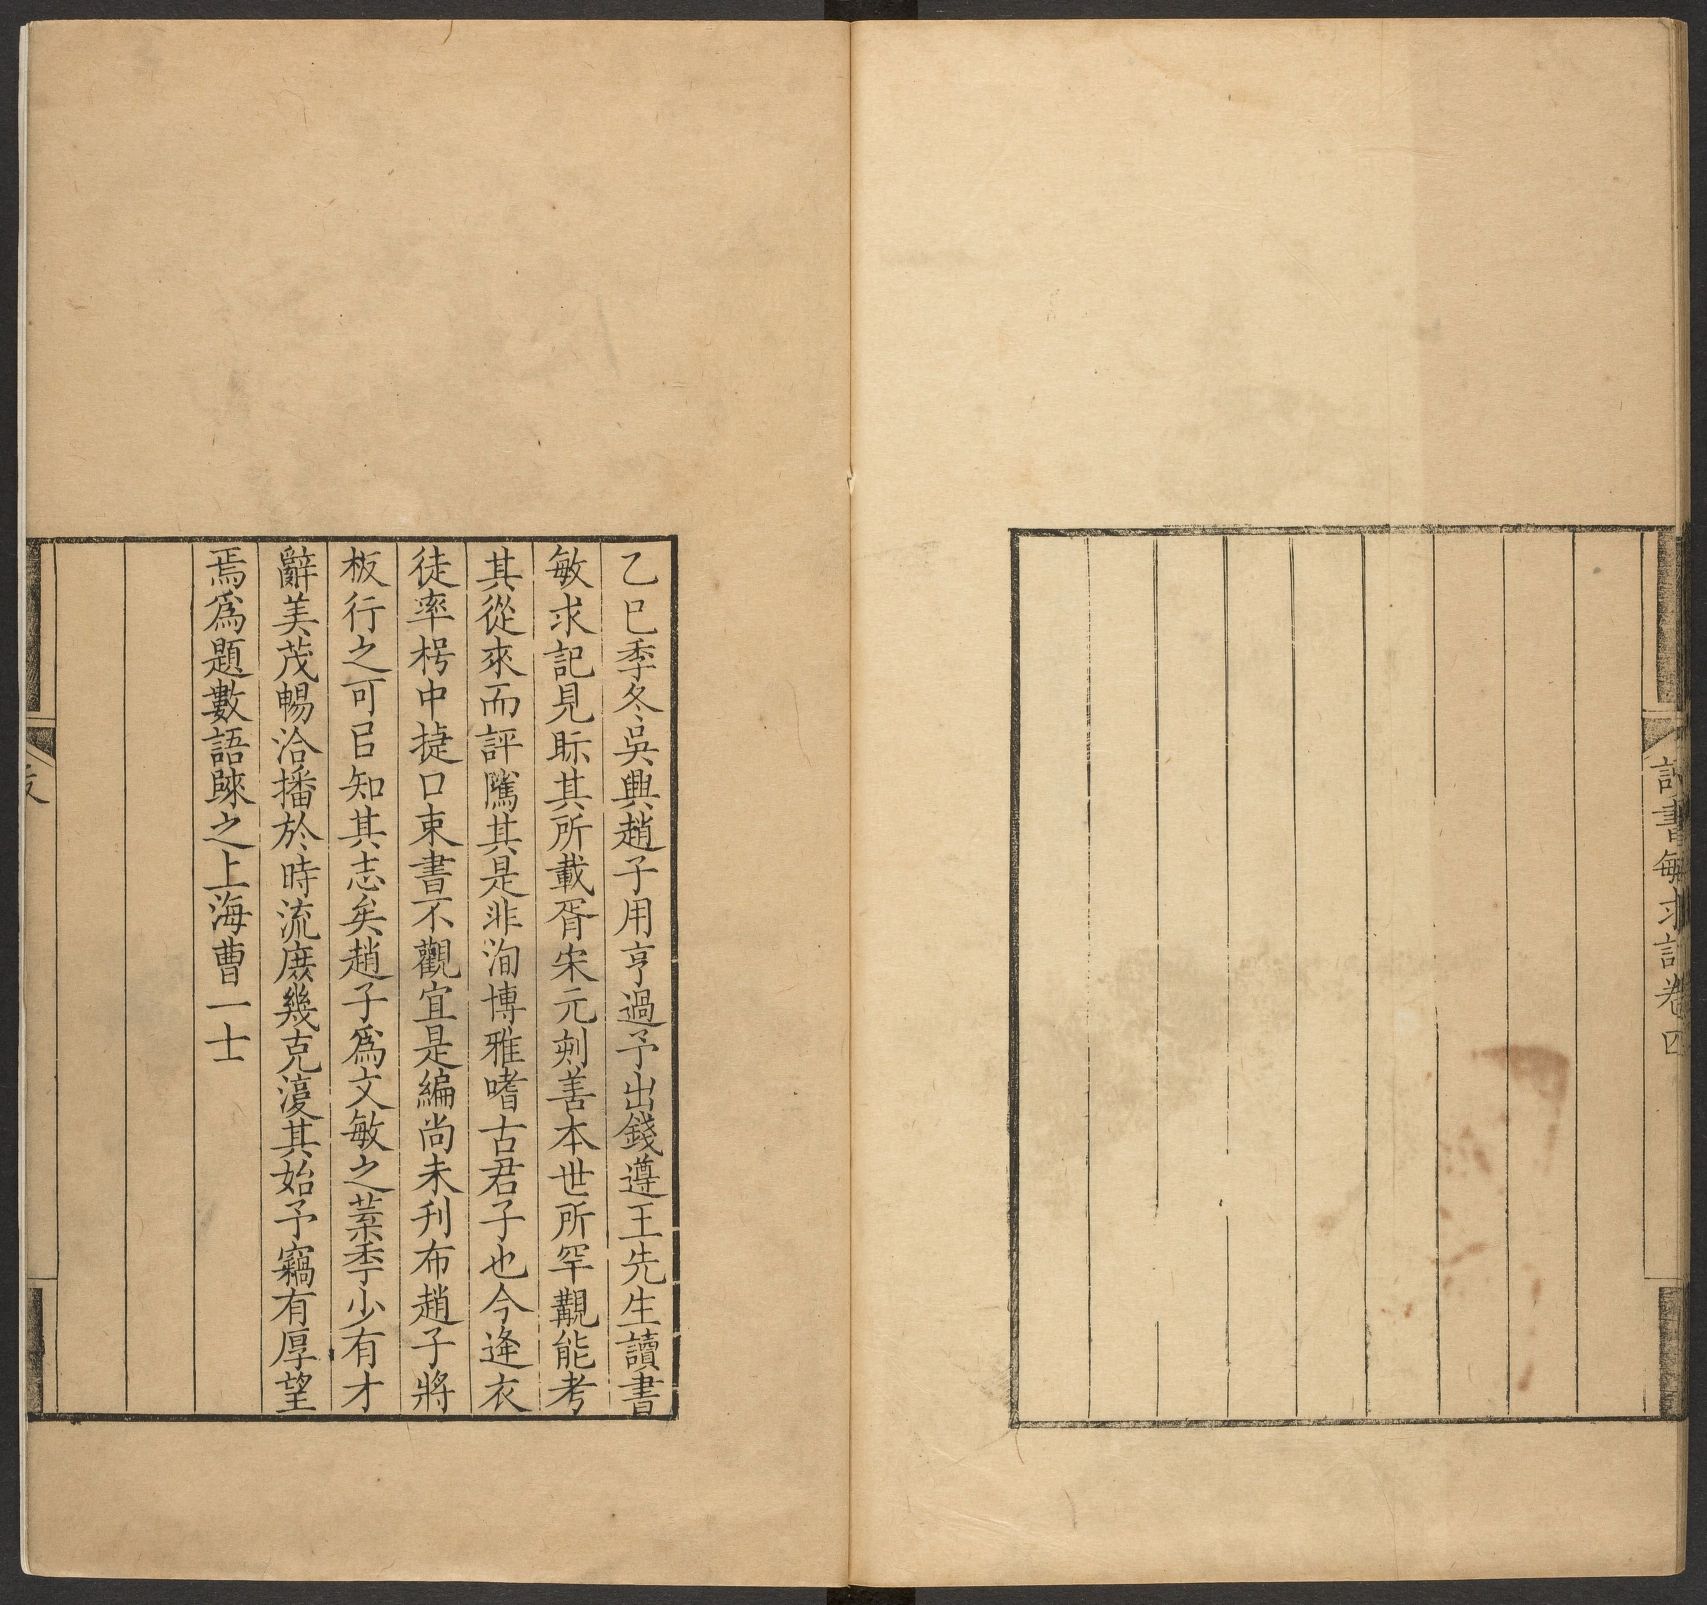 讀書敏求記卷四
乙巳季冬吳興趙子用亨過予出錢遵王先生讀書
敏求記見眎其所載胥宋元刻善本世所罕覯能考
其從來而評隲其是非洵博雅嗜古君子也今逢衣
徒率枵中捷口束書不觀宜是編尚未刊布趙子將
板行之可㠯知其志矣趙子爲文敏之葉季少有才
辭美茂暢洽播於時流庶幾克澓其始予竊有厚望
焉爲題數語歸之上海曹一士